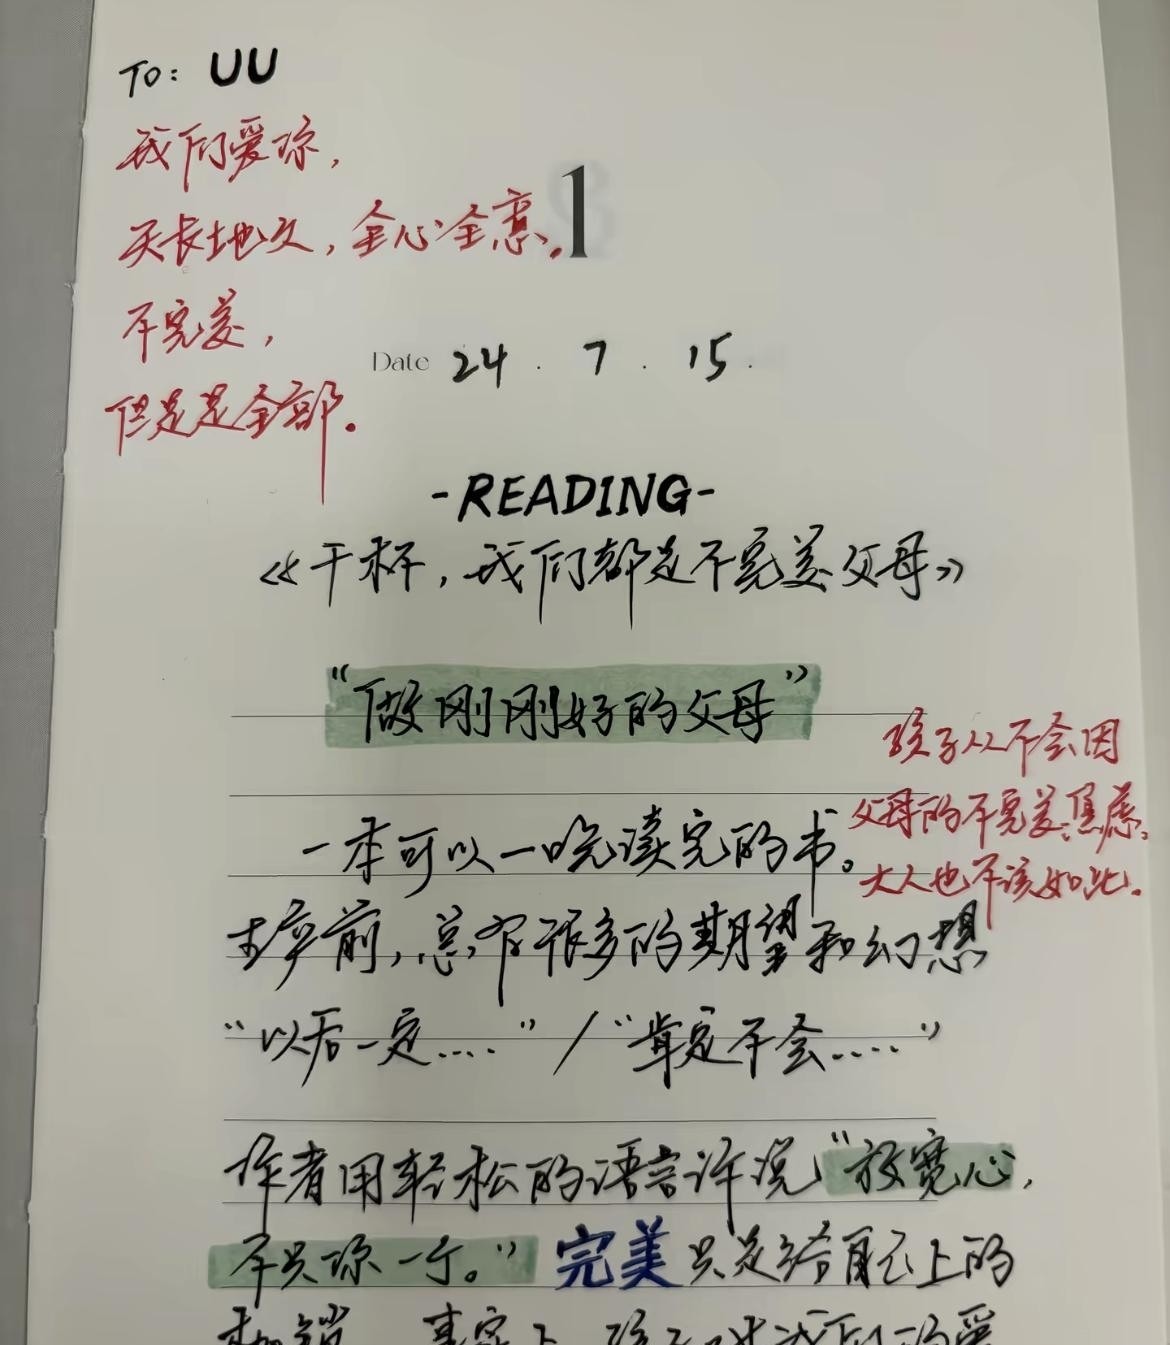 To: UU
我们爱你,
天长地久,全心全意。
1
不完美,
Date 24 . 7 . 15 .
但是是全部。
-READING-
《干杯,我们都是不完美父母》
“做刚刚好的父母”
孩子从不会因
父母的不完美焦虑。
大人也不该如此。
一本可以一晚读完的书。
生孕前,总有很多的期望和幻想
“以后一定....” / “肯定不会....”
作者用轻松的语言诉说“放宽心,
不只你一个。” 完美只是给自己上的
枷锁,事实上,孩子对我们的爱